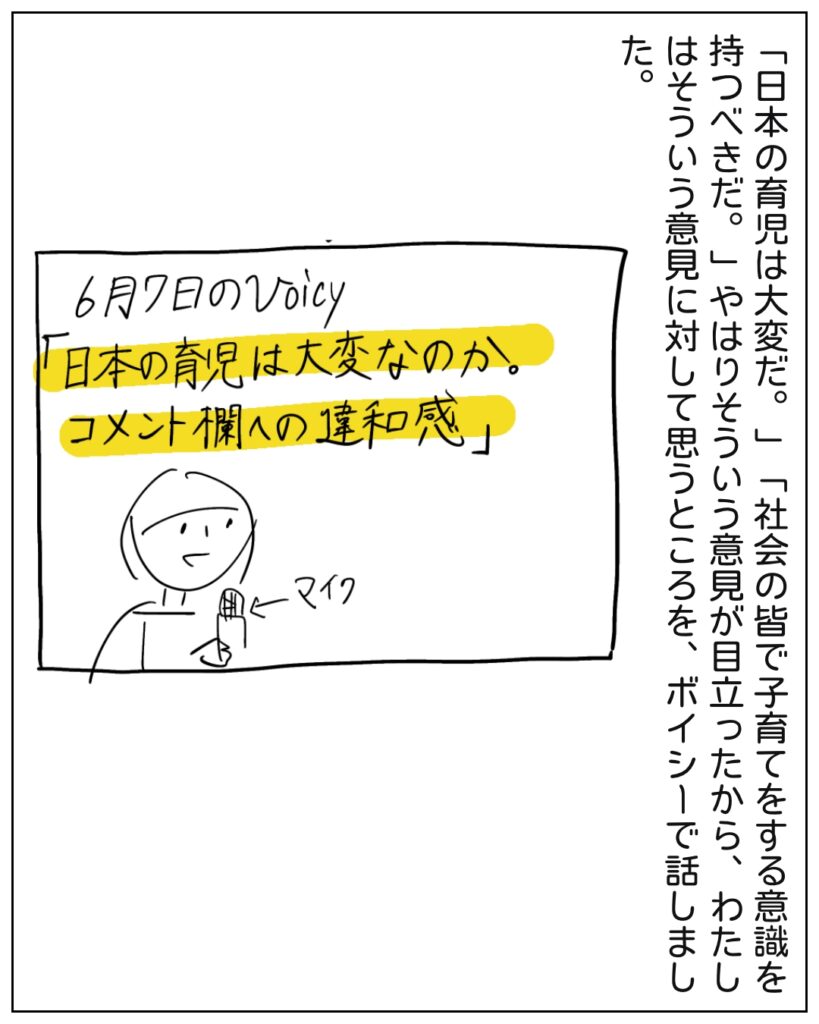 「日本の育児は大変だ。」「社会の皆で子育てをする意識を
持つべきだ。」やはりそういう意見が目立ったから、わたし
はそういう意見に対して思うところを、ボイシーで話しまし
た。
6月7日のVoicy
「日本の育児は大変なのか。
コメント欄への違和感」
マイク